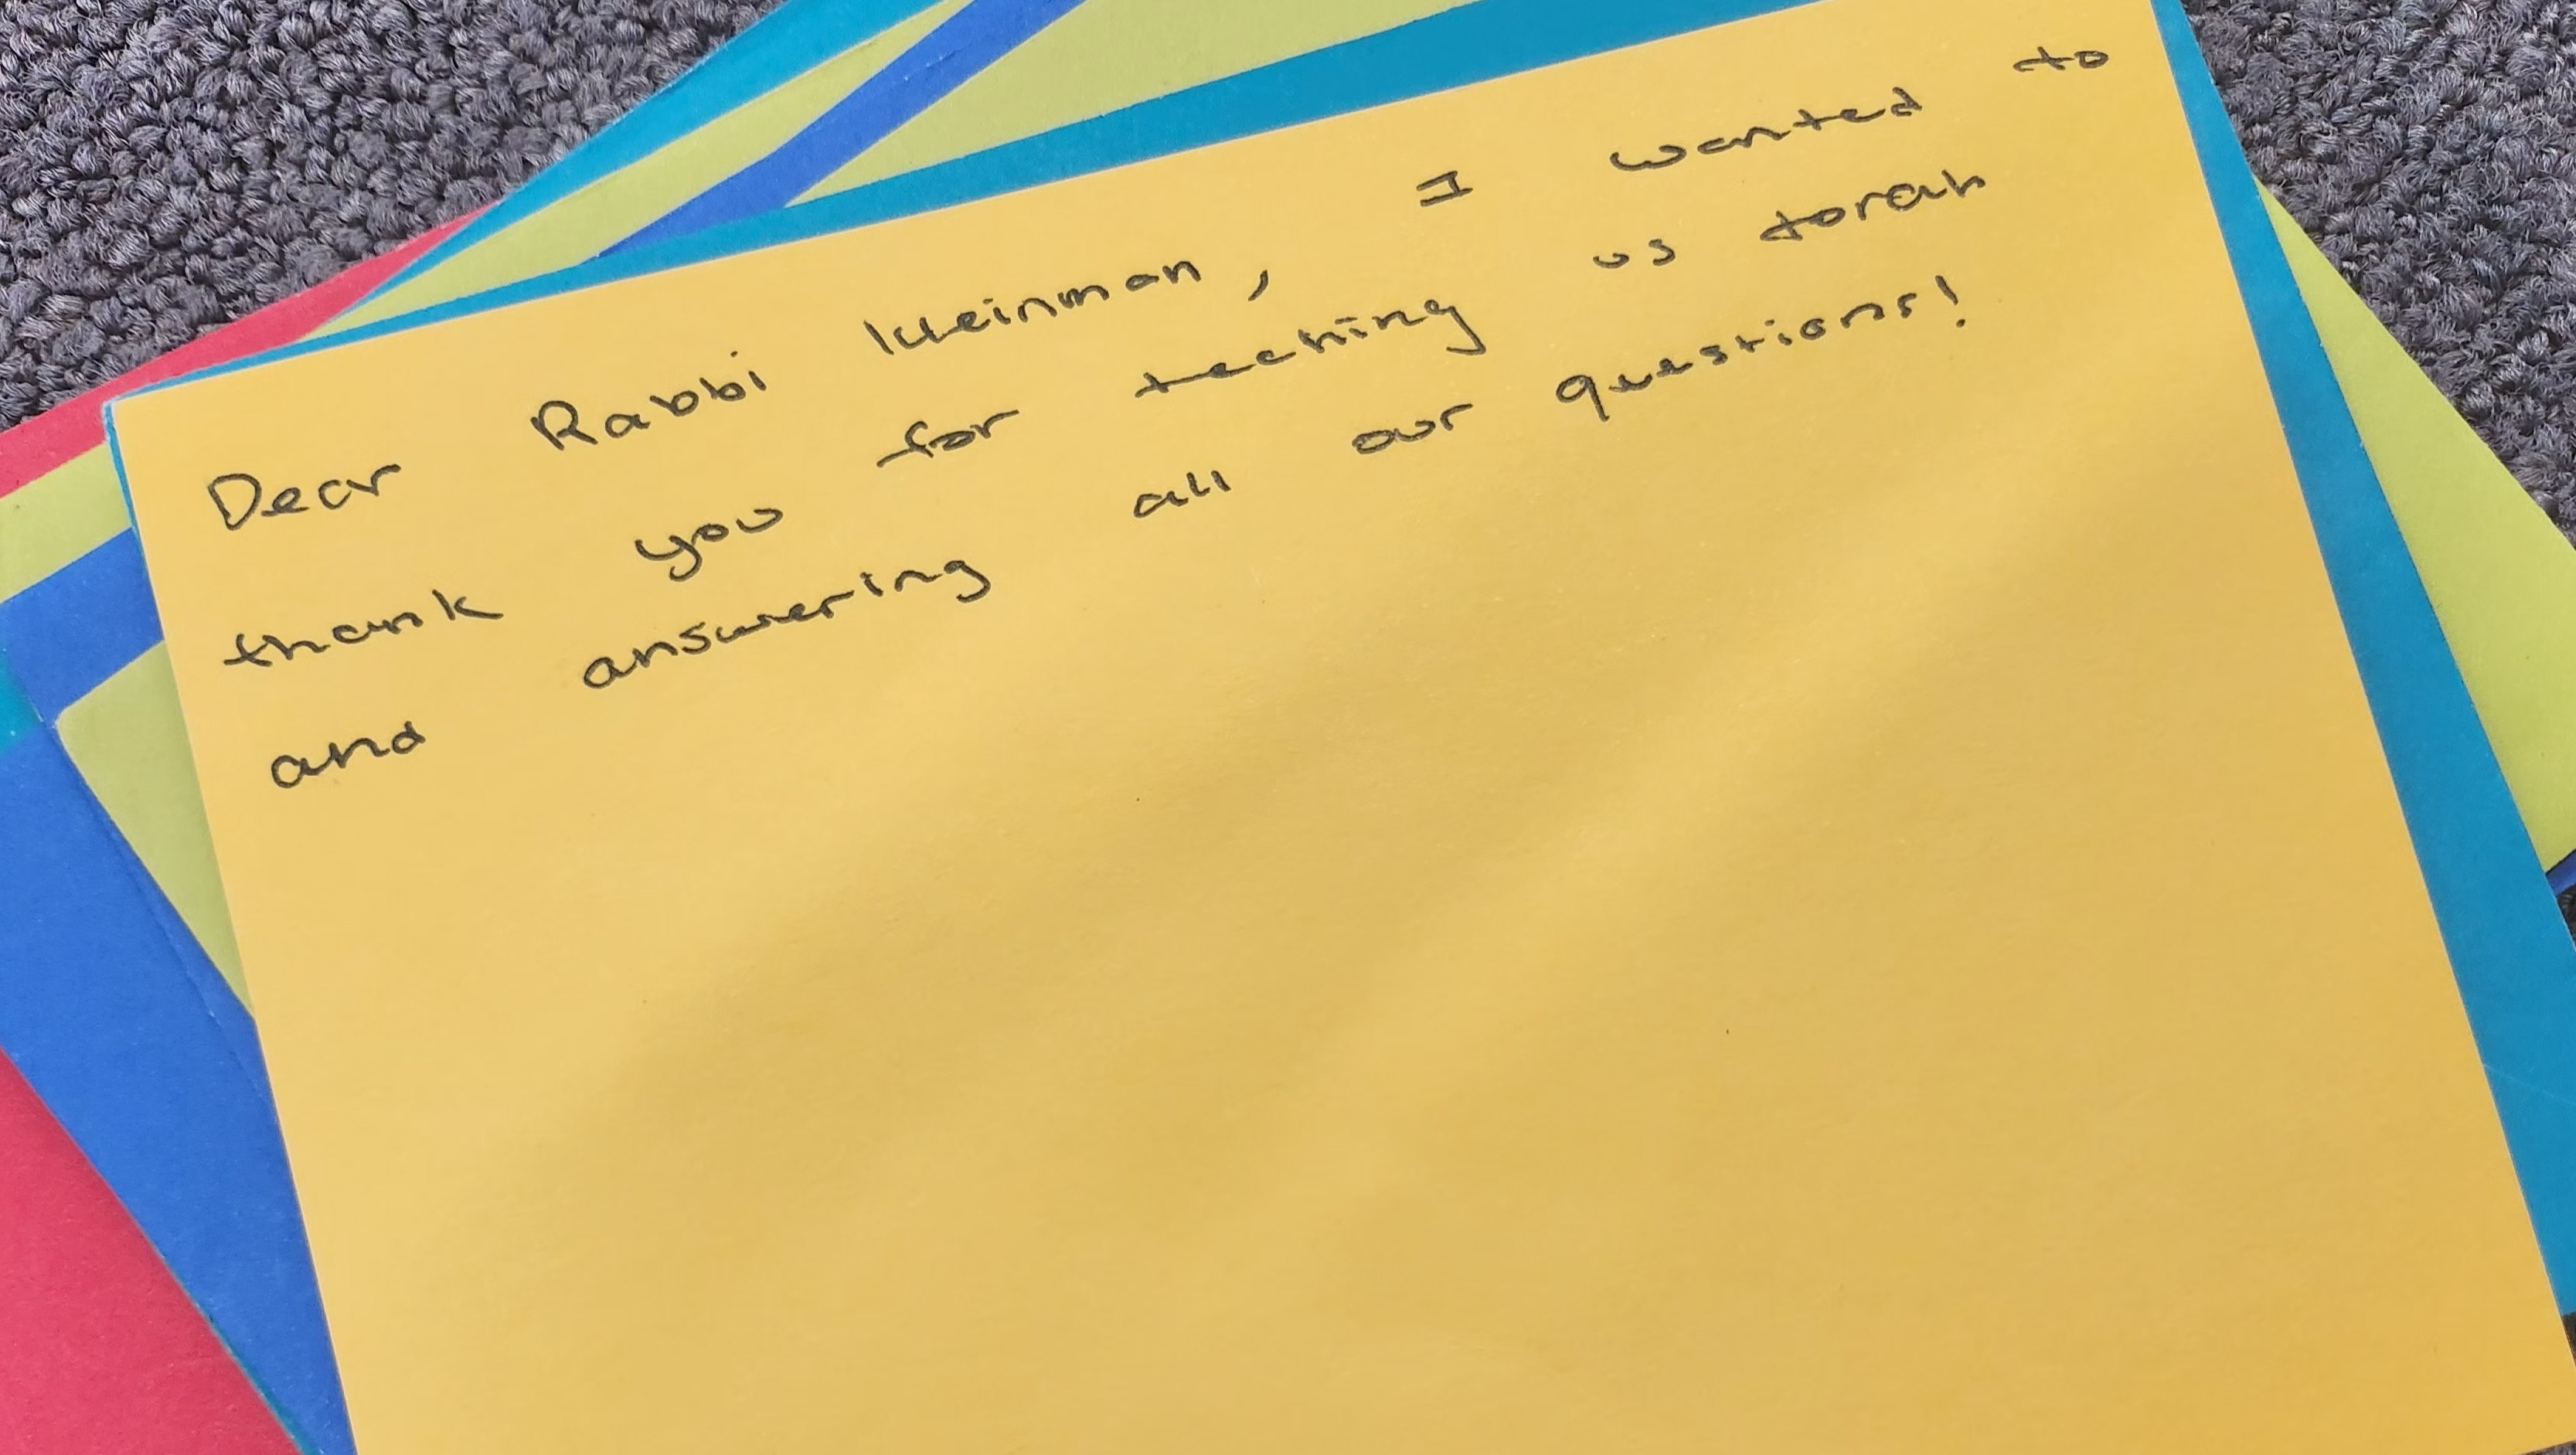 Dear Rabbi Kleinman, I wanted to
thank you for teching us torah
and answering all our questions!